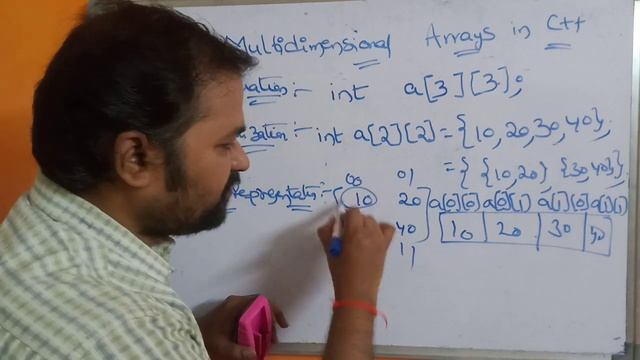 Multidimensional Arrays in C++
:- int a[3][3];
:- int a[2][2] = {10,20,30,40};
= { {10,20} {30,40}};
00 01
10 20 a[0][0] a[0][1] a[1][0] a[1][1]
40 10 20 30 40
11